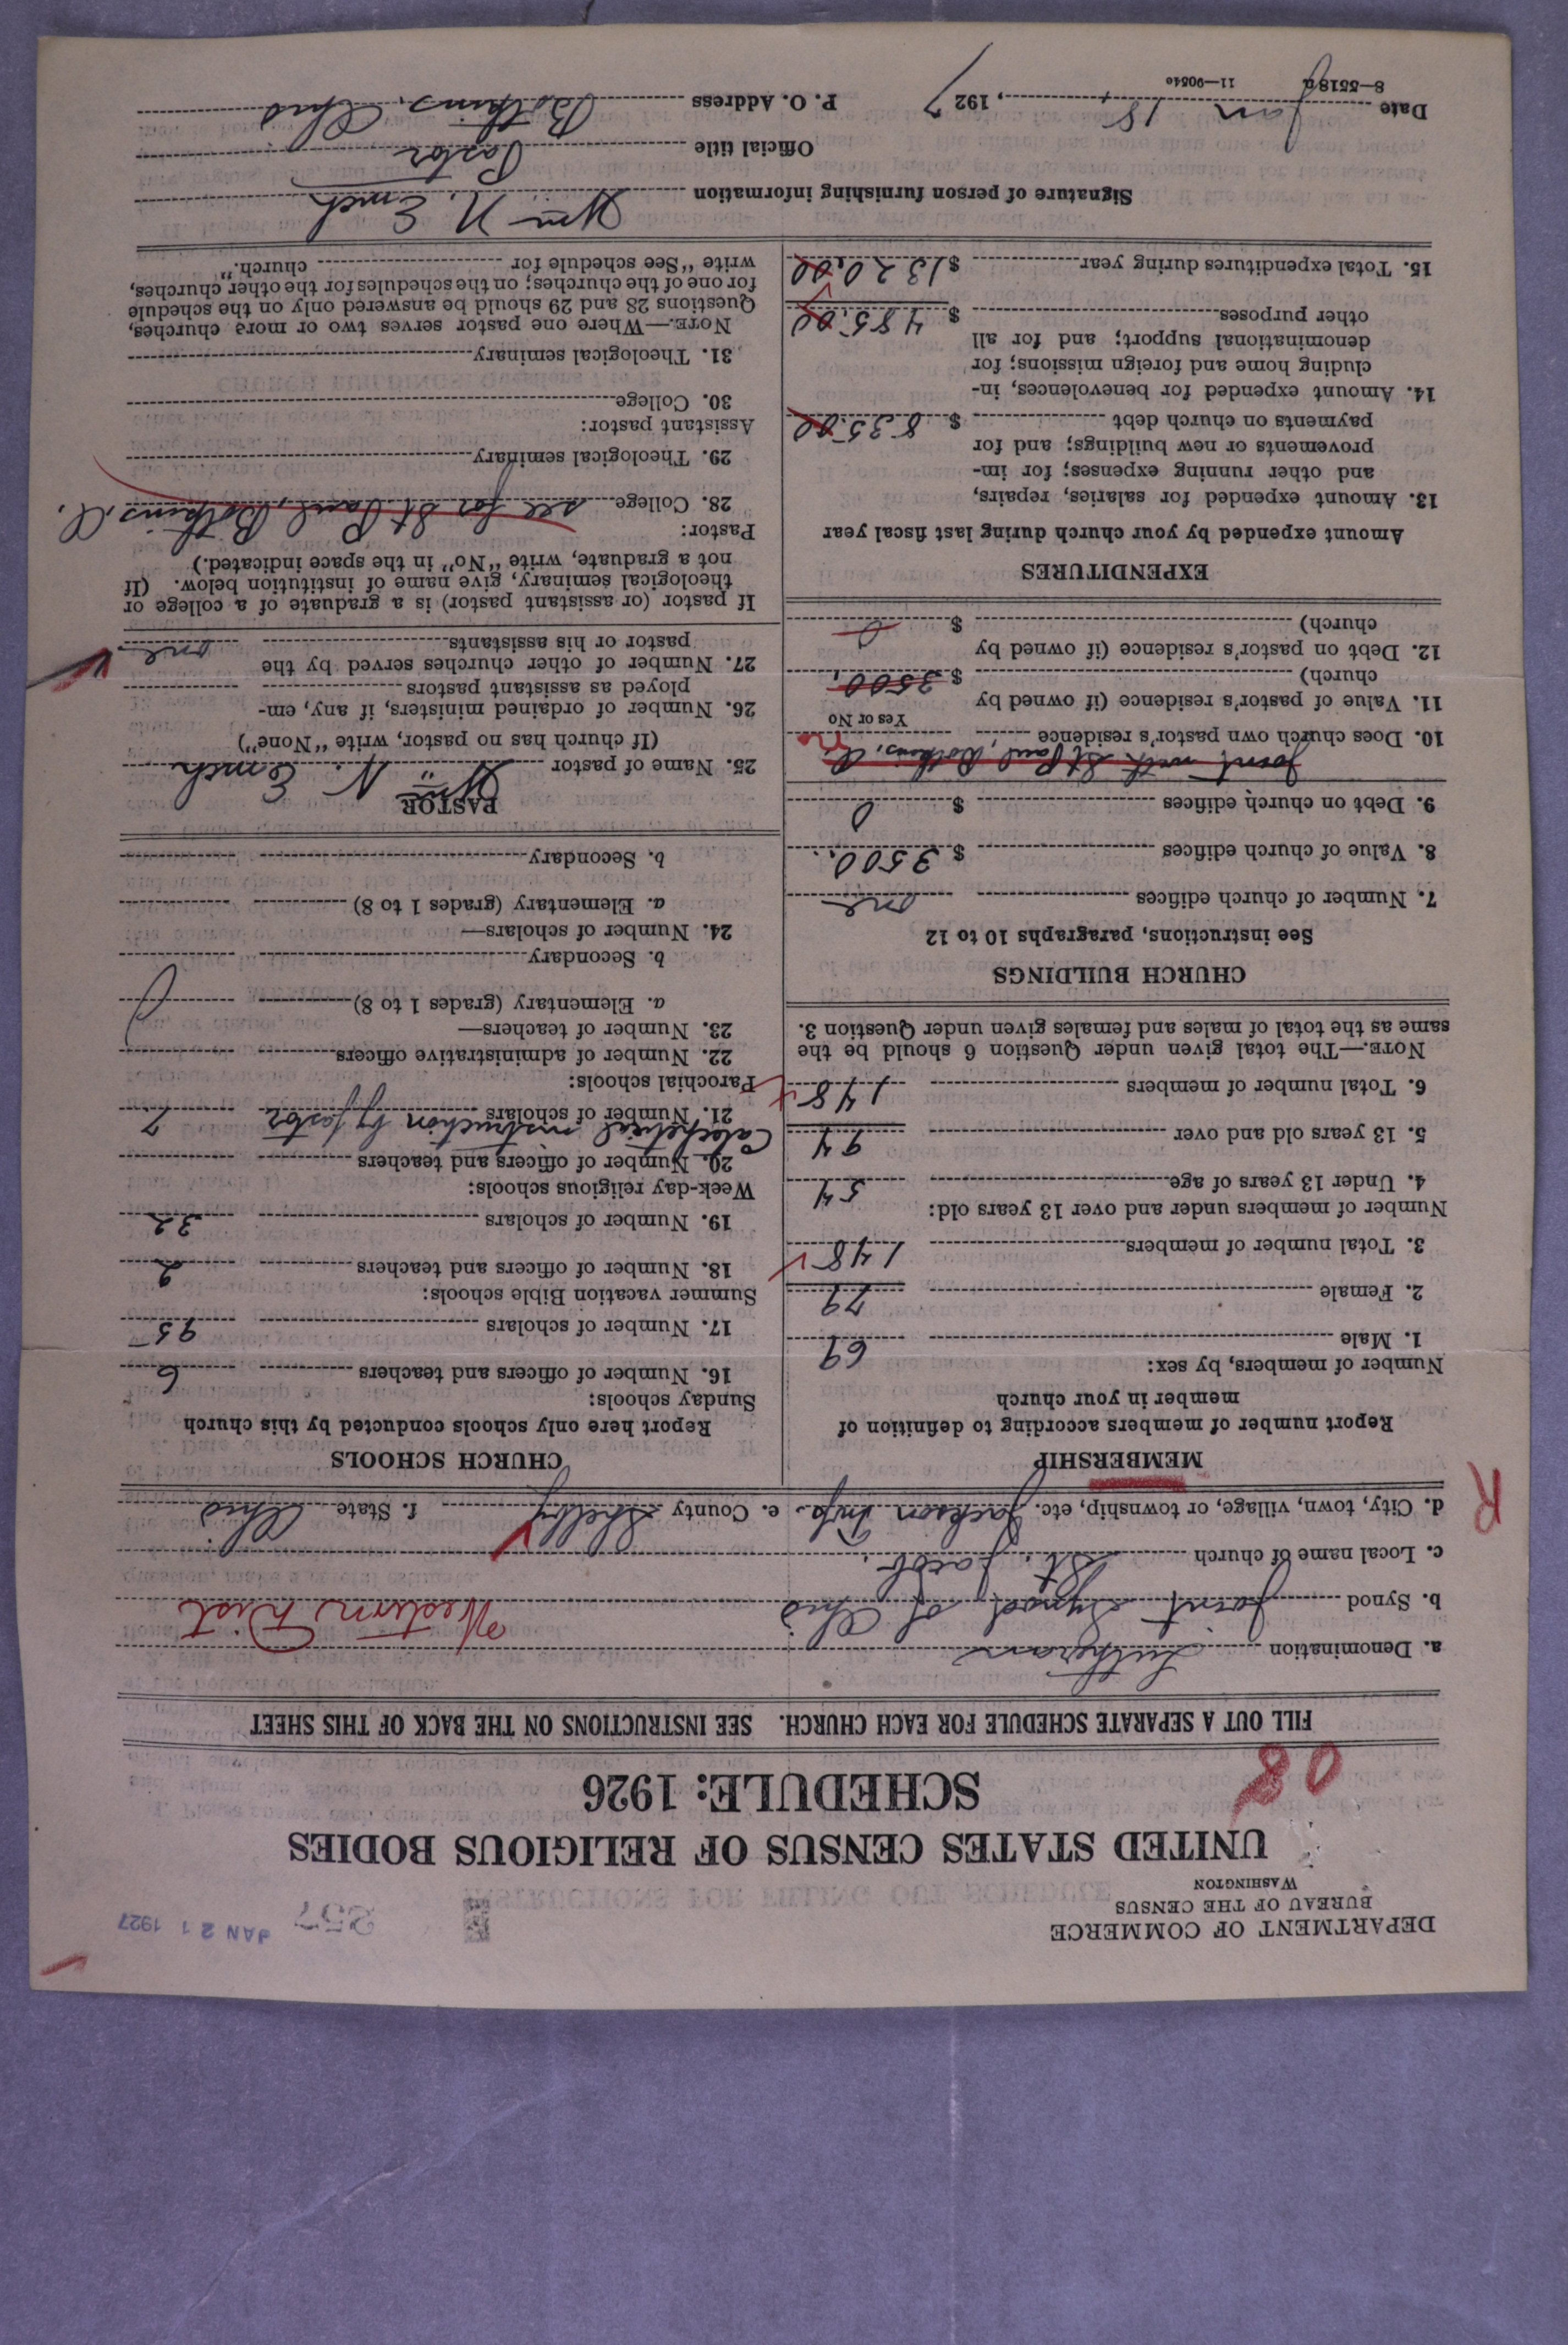 DEPARTMENT OF COMMERCE
BUREAU OF THE CENSUS
WASHINGTON
357 JAN 21 1927
UNITED STATES CENSUS OF RELIGIOUS BODIES
SCHEDULE: 1926
08
FILL OUT A SEPARATE SCHEDULE FOR EACH CHURCH. SEE INSTRUCTIONS ON THE BACK OF THIS SHEET
a. Denomination Lutheran
b. Synod Joint Synod of Ohio Western Dist
c. Local name of church St. Jacob.
d. City, town, village, or township, etc. Jackson Twp. e. County Shelby f. State Ohio
R
MEMBERSHIP
Report number of members according to definition of
member in your church
Number of members, by sex:
1. Male 69
2. Female 79
3. Total number of members 148
Number of members under and over 13 years old:
4. Under 13 years of age 54
5. 13 years old and over 94
6. Total number of members 148
NOTE.—The total given under Question 6 should be the
same as the total of males and females given under Question 3.
CHURCH BUILDINGS
See instructions, paragraphs 10 to 12
7. Number of church edifices one
8. Value of church edifices $ 3500.
9. Debt on church edifices $ 0
Joint with St Paul, Botkins, O.
10. Does church own pastor's residence no
Yes or No
11. Value of pastor's residence (if owned by
church) $ 3500.
12. Debt on pastor's residence (if owned by
church) $ 0
EXPENDITURES
Amount expended by your church during last fiscal year
13. Amount expended for salaries, repairs,
and other running expenses; for im-
provements or new buildings; and for
payments on church debt $ 835.00
14. Amount expended for benevolences, in-
cluding home and foreign missions; for
denominational support; and for all
other purposes $ 485.00
15. Total expenditures during year $ 1320.00
CHURCH SCHOOLS
Report here only schools conducted by this church
Sunday schools:
16. Number of officers and teachers 6
17. Number of scholars 95
Summer vacation Bible schools:
18. Number of officers and teachers 2
19. Number of scholars 32
Week-day religious schools:
20. Number of officers and teachers
Catechetical instruction by pastor
21. Number of scholars 7
Parochial schools:
22. Number of administrative officers
23. Number of teachers—
a. Elementary (grades 1 to 8)
b. Secondary
24. Number of scholars—
a. Elementary (grades 1 to 8)
b. Secondary
PASTOR
25. Name of pastor Wm. N. Emch
(If church has no pastor, write "None")
26. Number of ordained ministers, if any, em-
ployed as assistant pastors
27. Number of other churches served by the
pastor or his assistants one
If pastor (or assistant pastor) is a graduate of a college or
theological seminary, give name of institution below. (If
not a graduate, write "No" in the space indicated.)
Pastor:
28. College see for St. Paul, Botkins, O.
29. Theological seminary
Assistant pastor:
30. College
31. Theological seminary
NOTE.—Where one pastor serves two or more churches,
Questions 28 and 29 should be answered only on the schedule
for one of the churches; on the schedules for the other churches,
write "See schedule for church."
Signature of person furnishing information Wm N. Emch
Official title Pastor
Date Jan 18, 1927 P. O. Address Botkins, Ohio
8—5518a 11—9054